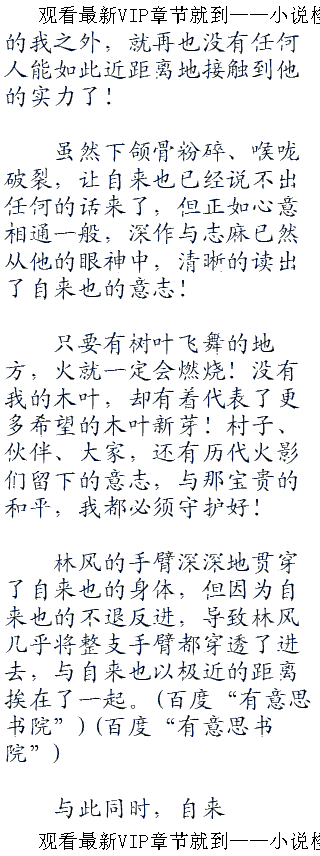 观看最新VIP章节就到——小说楼
的我之外，就再也没有任何
人能如此近距离地接触到他
的实力了！
虽然下颌骨粉碎、喉咙
破裂，让自来也已经说不出
任何的话来了，但正如心意
相通一般，深作与志麻已然
从他的眼神中，清晰的读出
了自来也的意志！
只要有树叶飞舞的地
方，火就一定会燃烧！没有
我的木叶，却有着代表了更
多希望的木叶新芽！村子、
伙伴、大家，还有历代火影
们留下的意志，与那宝贵的
和平，我都必须守护好！
林风的手臂深深地贯穿
了自来也的身体，但因为自
来也的不退反进，导致林风
几乎将整支手臂都穿透了进
去，与自来也以极近的距离
挨在了一起。(百度“有意思
书院”)(百度“有意思书
院”)
与此同时，自来
观看最新VIP章节就到——小说楼